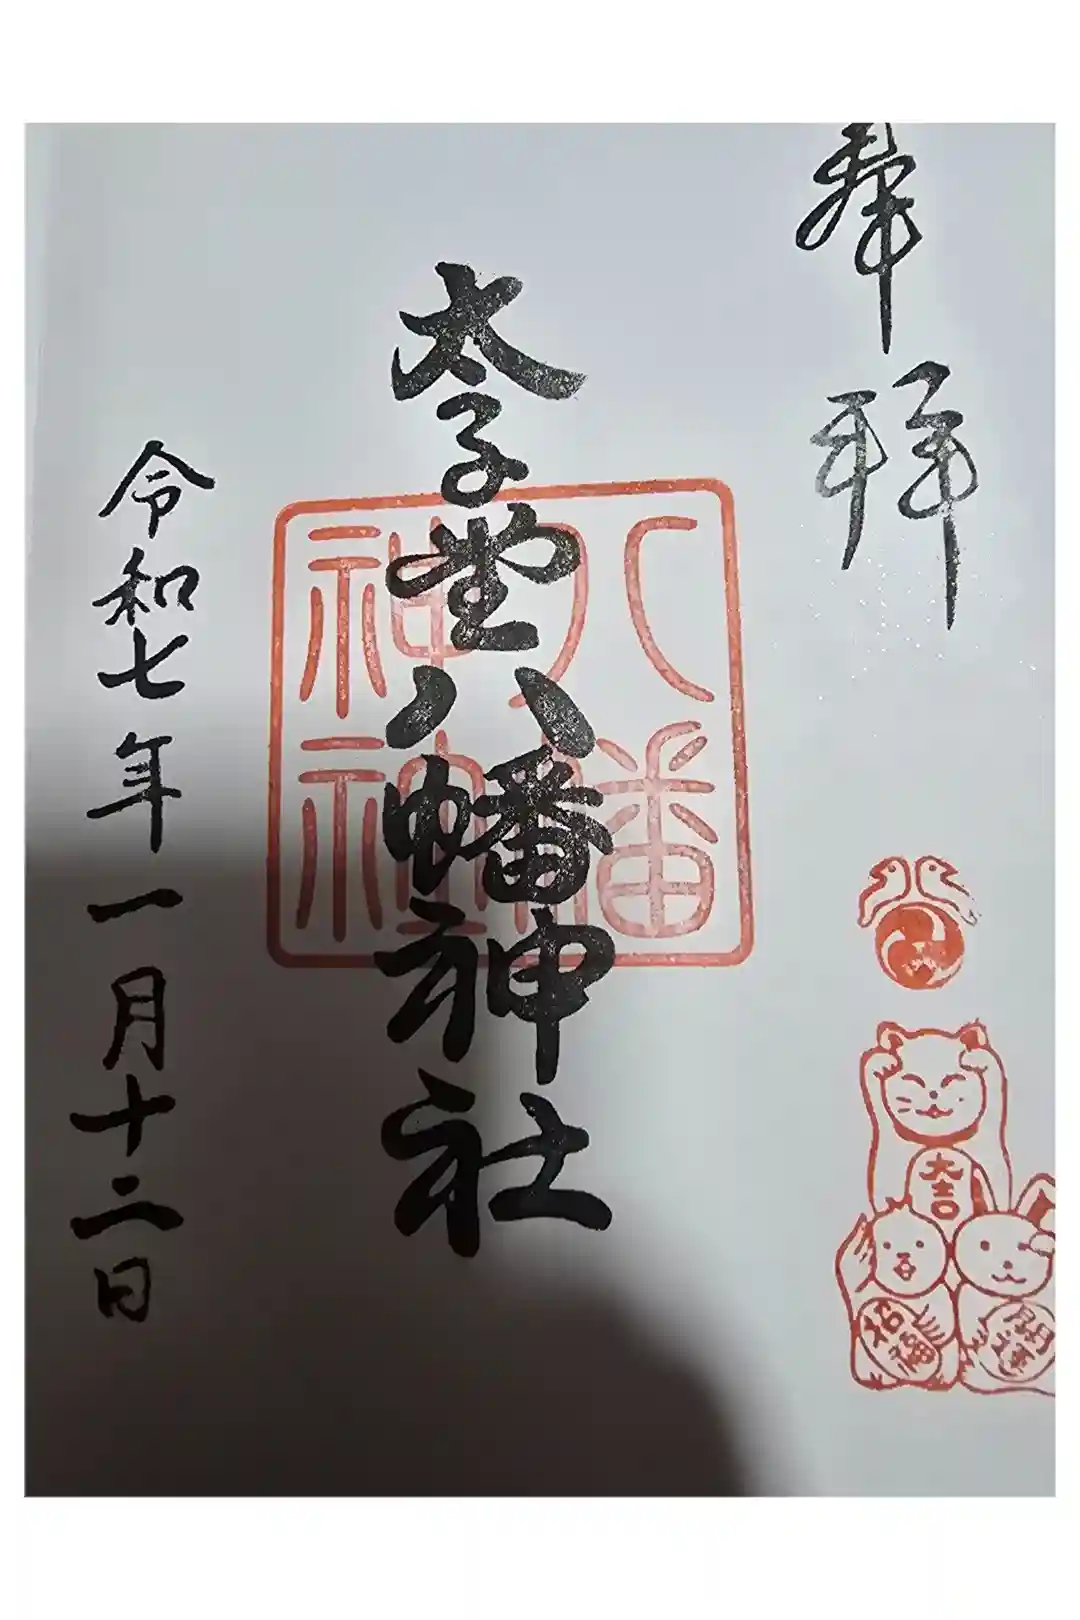 奉拝
太子堂八幡神社
八幡
神社
大吉
招福
開運
令和七年一月十二日